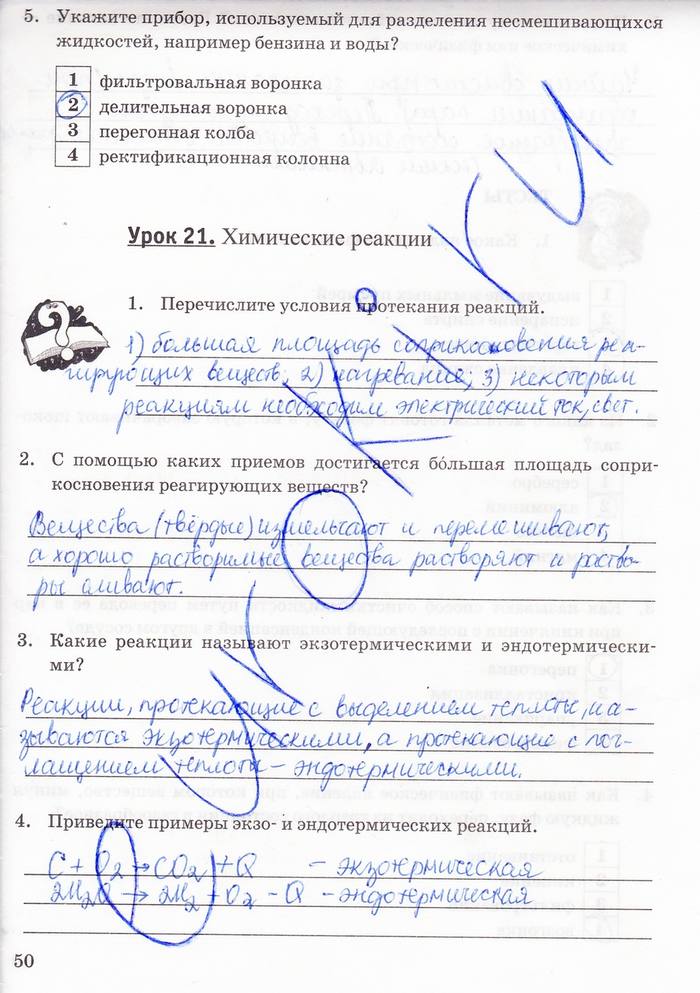 5. Укажите прибор, используемый для разделения несмешивающихся
жидкостей, например бензина и воды?
1 фильтровальная воронка
2 делительная воронка
3 перегонная колба
4 ректификационная колонна
Урок 21. Химические реакции
1. Перечислите условия протекания реакций.
1) большая площадь соприкосновения реа-
гирующих веществ, 2) нагревание, 3) некоторым
реакциям необходим электрический ток, свет.
2. С помощью каких приемов достигается бо́льшая площадь сопри-
косновения реагирующих веществ?
Вещества (твёрдые) измельчают и перемешивают,
а хорошо растворимые вещества растворяют и раство-
ры сливают.
3. Какие реакции называют экзотермическими и эндотермически-
ми?
Реакции, протекающие с выделением теплоты, на-
зываются экзотермическими, а протекающие с пог-
лащением теплоты - эндотермическими.
4. Приведите примеры экзо- и эндотермических реакций.
C + O2 → CO2 + Q - экзотермическая
2H2O → 2H2 + O2 - Q - эндотермическая
50